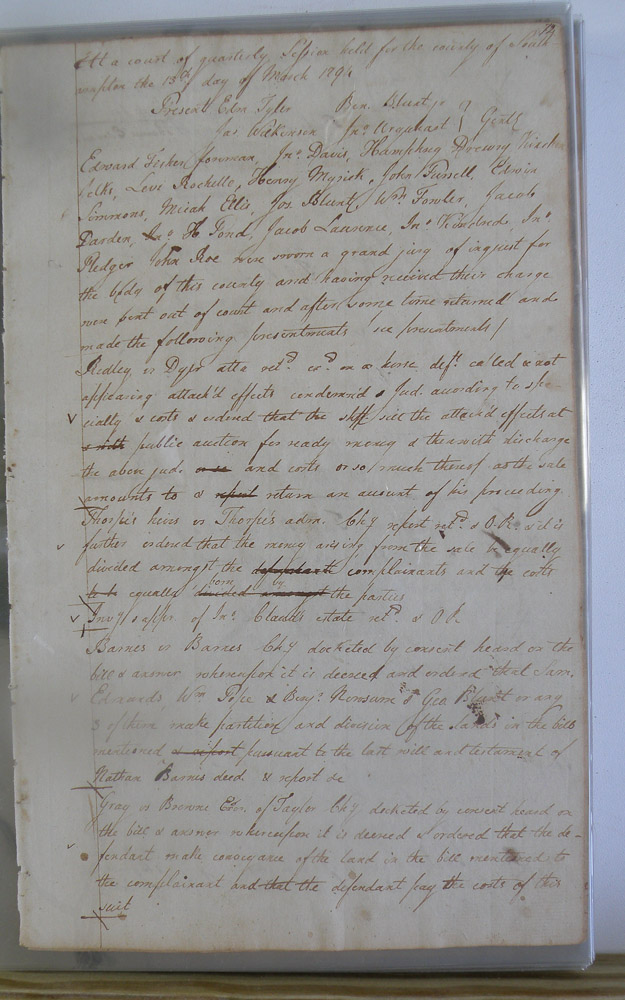 At a court of quarterly Session held for the county of South
ampton the 13th day of March 179
Present Edm. Tyler Ben. Blunt jr
Jas Wilkinson Jno Urquhart } Gents
Edward Fisher foreman, Jno Davis, Humphrey Drewry
Felks, Levi Rochelle, Henry Myrick, John Pursell, Edwin
Simmons, Micah Ellis, Jos. Blunt, Wm Fowler, Jacob
Darden, Jno H Pond, Jacob Laurence, Jno Kindred, Jno
Pledger John Roe were sworn a grand jury of inquest for
the body of this county and having received their charge
were sent out of court and after some time returned and
made the following presentments see presentments/
Ridley vs Dyer atta retd exd on a horse deft called & not
appearing attach'd effects condemn'd & Jud. according to spe-
cialty & costs & ordered that the shff sell the attach'd effects at
public auction for ready money & therewith discharge
the above jud. and costs or so much thereof as the sale
amounts to & return an account of his proceeding
Thorpe's heirs vs Thorpe's adm. Chy report retd & O.R. & it is
further ordered that the money arising from the sale be equally
divided amongst the complainants and the costs
to be equally divided amongst the parties
born by
Invy & appr. of Jno Claud's estate retd & OR
Barnes vs Barnes Chy docketed by consent heard on the
bill & answer whereupon it is decreed and ordered that Sam.
Edwards Wm Pope & Benj. Newsum & Geo Blunt or any
3 of them make partition and division of the lands in the bill
mentioned & report pursuant to the last will and testament of
Nathan Barnes deed & report &c
Gray vs Browne Exor. of Taylor Chy docketed by consent heard on
the bill & answer whereupon it is decreed & ordered that the de-
fendant make conveyance of the land in the bill mentioned to
the complainant and that the defendant pay the costs of this
suit